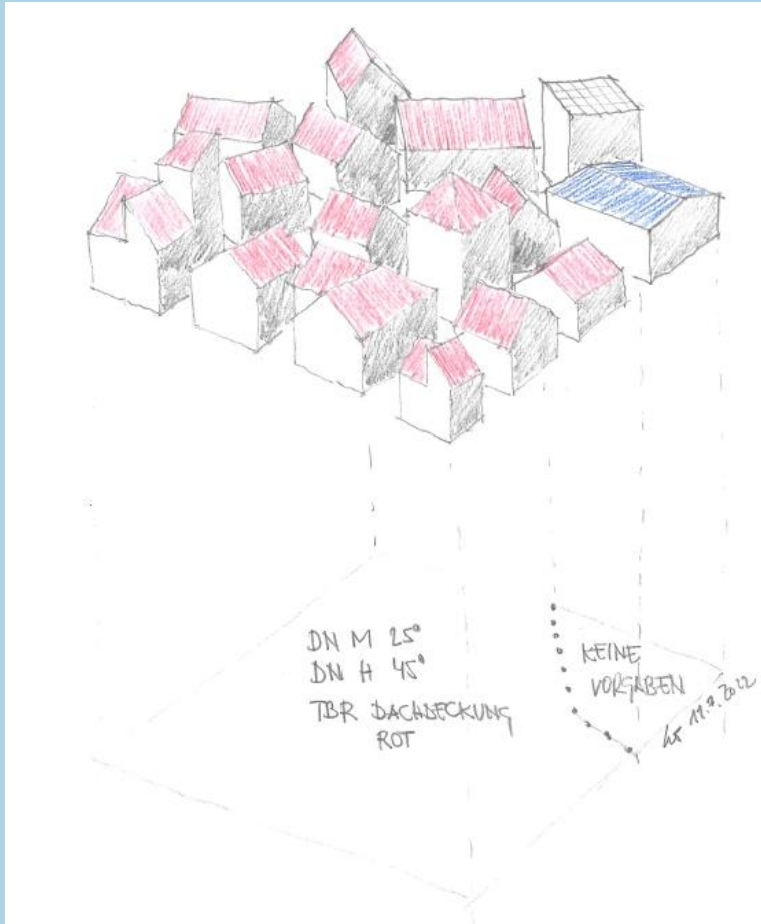 DN M 25°
DN H 45°
TBR DACHDECKUNG
ROT
KEINE
VORGABEN
2022